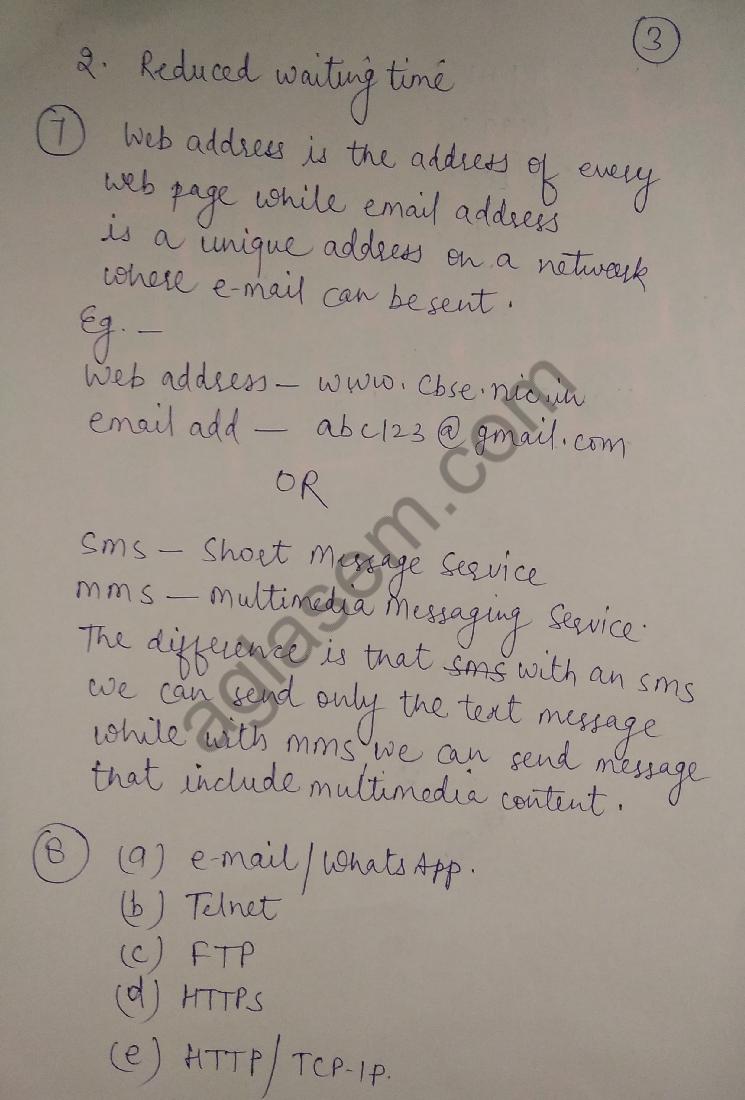 3
2. Reduced waiting time
7 Web address is the address of every
web page while email address
is a unique address on a network
where e-mail can be sent.
Eg. —
Web address — www.cbse.nic.in
email add — abc123@gmail.com
OR
SMS — Short Message Service
MMS — Multimedia Messaging Service.
The difference is that sms with an sms
we can send only the text message
while with mms, we can send message
that include multimedia content.
8 (a) e-mail/WhatsApp.
(b) Telnet
(c) FTP
(d) HTTPS
(e) HTTP/TCP-IP.
aglasem.com